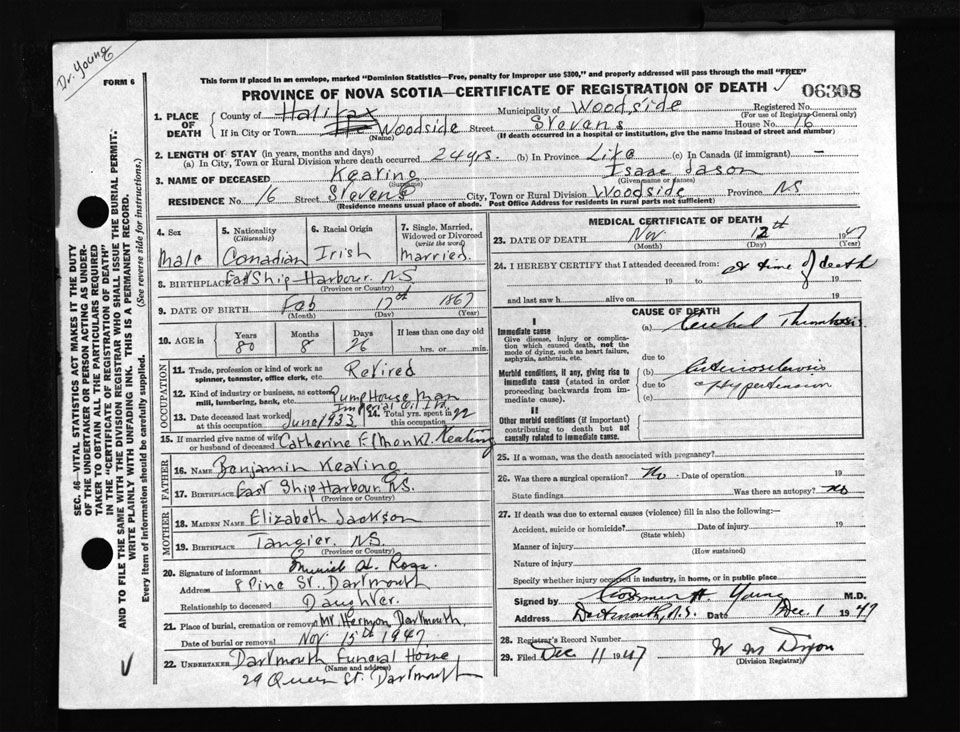 Dr. Young
FORM 6
This form if placed in an envelope, marked "Dominion Statistics—Free, penalty for improper use $300," and properly addressed will pass through the mail "FREE"
PROVINCE OF NOVA SCOTIA—CERTIFICATE OF REGISTRATION OF DEATH
06308
1. PLACE OF DEATH
County of Halifax Municipality of Woodside Registered No.
(For use of Registrar-General only)
If in City or Town Woodside Street Stevens House No. 16
(Name) (If death occurred in a hospital or institution, give the name instead of street and number)
2. LENGTH OF STAY (in years, months and days)
(a) In City, Town or Rural Division where death occurred 24 yrs. (b) In Province Life (c) In Canada (if immigrant) —
3. NAME OF DECEASED Keating Isaac Jason
(Surname) (Given name or names)
RESIDENCE No. 16 Street Stevens City, Town or Rural Division Woodside Province NS
(Residence means usual place of abode. Post Office Address for residents in rural parts not sufficient)
4. Sex
Male
5. Nationality
(Citizenship)
Canadian
6. Racial Origin
Irish
7. Single, Married, Widowed or Divorced
(write the word)
Married.
8. BIRTHPLACE East Ship Harbour. NS
(Province or Country)
9. DATE OF BIRTH Feb 17th 1867
(Month) (Day) (Year)
10. AGE in
Years Months Days If less than one day old
80 8 26 hrs. or min.
OCCUPATION
11. Trade, profession or kind of work as
spinner, teamster, office clerk, etc. Retired
12. Kind of industry or business, as cotton
mill, lumbering, bank, etc. Pump House Man
Imperial Oil Ltd.
13. Date deceased last worked
at this occupation June 1933
14. Total yrs. spent in
this occupation 22
15. If married give name of wife
or husband of deceased Catherine F. (Monk). Keating
FATHER
16. NAME Benjamin Keating
17. BIRTHPLACE East Ship Harbour. NS.
(Province or Country)
MOTHER
18. MAIDEN NAME Elizabeth Jackson
19. BIRTHPLACE Tangier. NS.
(Province or Country)
20. Signature of informant Ross.
Address 8 Pine St. Dartmouth
Relationship to deceased Daughter.
21. Place of burial, cremation or removal Mt. Hermon, Dartmouth,
Date of burial or removal Nov. 15th 1947
22. UNDERTAKER Dartmouth Funeral Home
(Name and address)
29 Queen St. Dartmouth
MEDICAL CERTIFICATE OF DEATH
23. DATE OF DEATH Nov 12th 1947
(Month) (Day) (Year)
24. I HEREBY CERTIFY that I attended deceased from: at time of death
19 to 19
and last saw h alive on 19
CAUSE OF DEATH
I
Immediate cause
Give disease, injury or complication which caused death, not the mode of dying, such as heart failure, asphyxia, asthenia, etc.
(a) Thrombosis
due to
Morbid conditions, if any, giving rise to immediate cause (stated in order proceeding backwards from immediate cause).
(b) Arteriosclerosis
due to
(c) Hypertension
II
Other morbid conditions (if important) contributing to death but not causally related to immediate cause.
25. If a woman, was the death associated with pregnancy?
26. Was there surgical operation? No. Date of operation 19
State findings Was there an autopsy? No
27. If death was due to external causes (violence) fill in also the following:—
Accident, suicide or homicide? Date of injury 19
(State which)
Manner of injury
(How sustained)
Nature of injury
Specify whether injury occurred in industry, in home, or in public place
Signed by H. Young M.D.
Address Dartmouth, N.S. Date Dec. 1 1947
28. Registrar's Record Number
29. Filed Dec 11 1947 W M Dixon
(Division Registrar)
SEC. 46—VITAL STATISTICS ACT MAKES IT THE DUTY
OF THE UNDERTAKER OR PERSON ACTING AS UNDER-
TAKER TO OBTAIN ALL THE PARTICULARS REQUIRED
IN THE "CERTIFICATE OF REGISTRATION OF DEATH"
AND TO FILE THE SAME WITH THE DIVISION REGISTRAR WHO SHALL ISSUE THE BURIAL PERMIT.
WRITE PLAINLY WITH UNFADING INK. THIS IS A PERMANENT RECORD.
Every item of information should be carefully supplied. (See reverse side for instructions.)